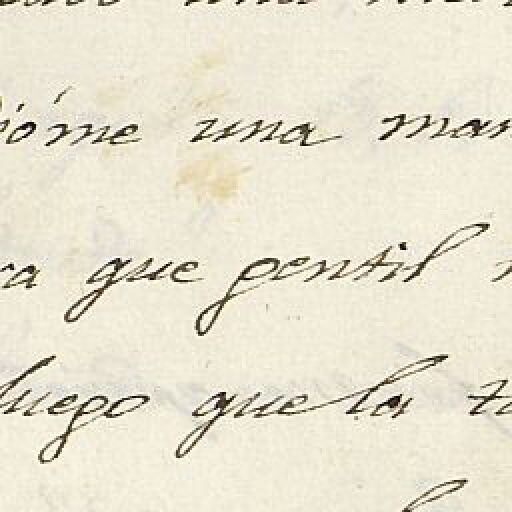 una
Dióme una man
ra que gentil
luego que la to